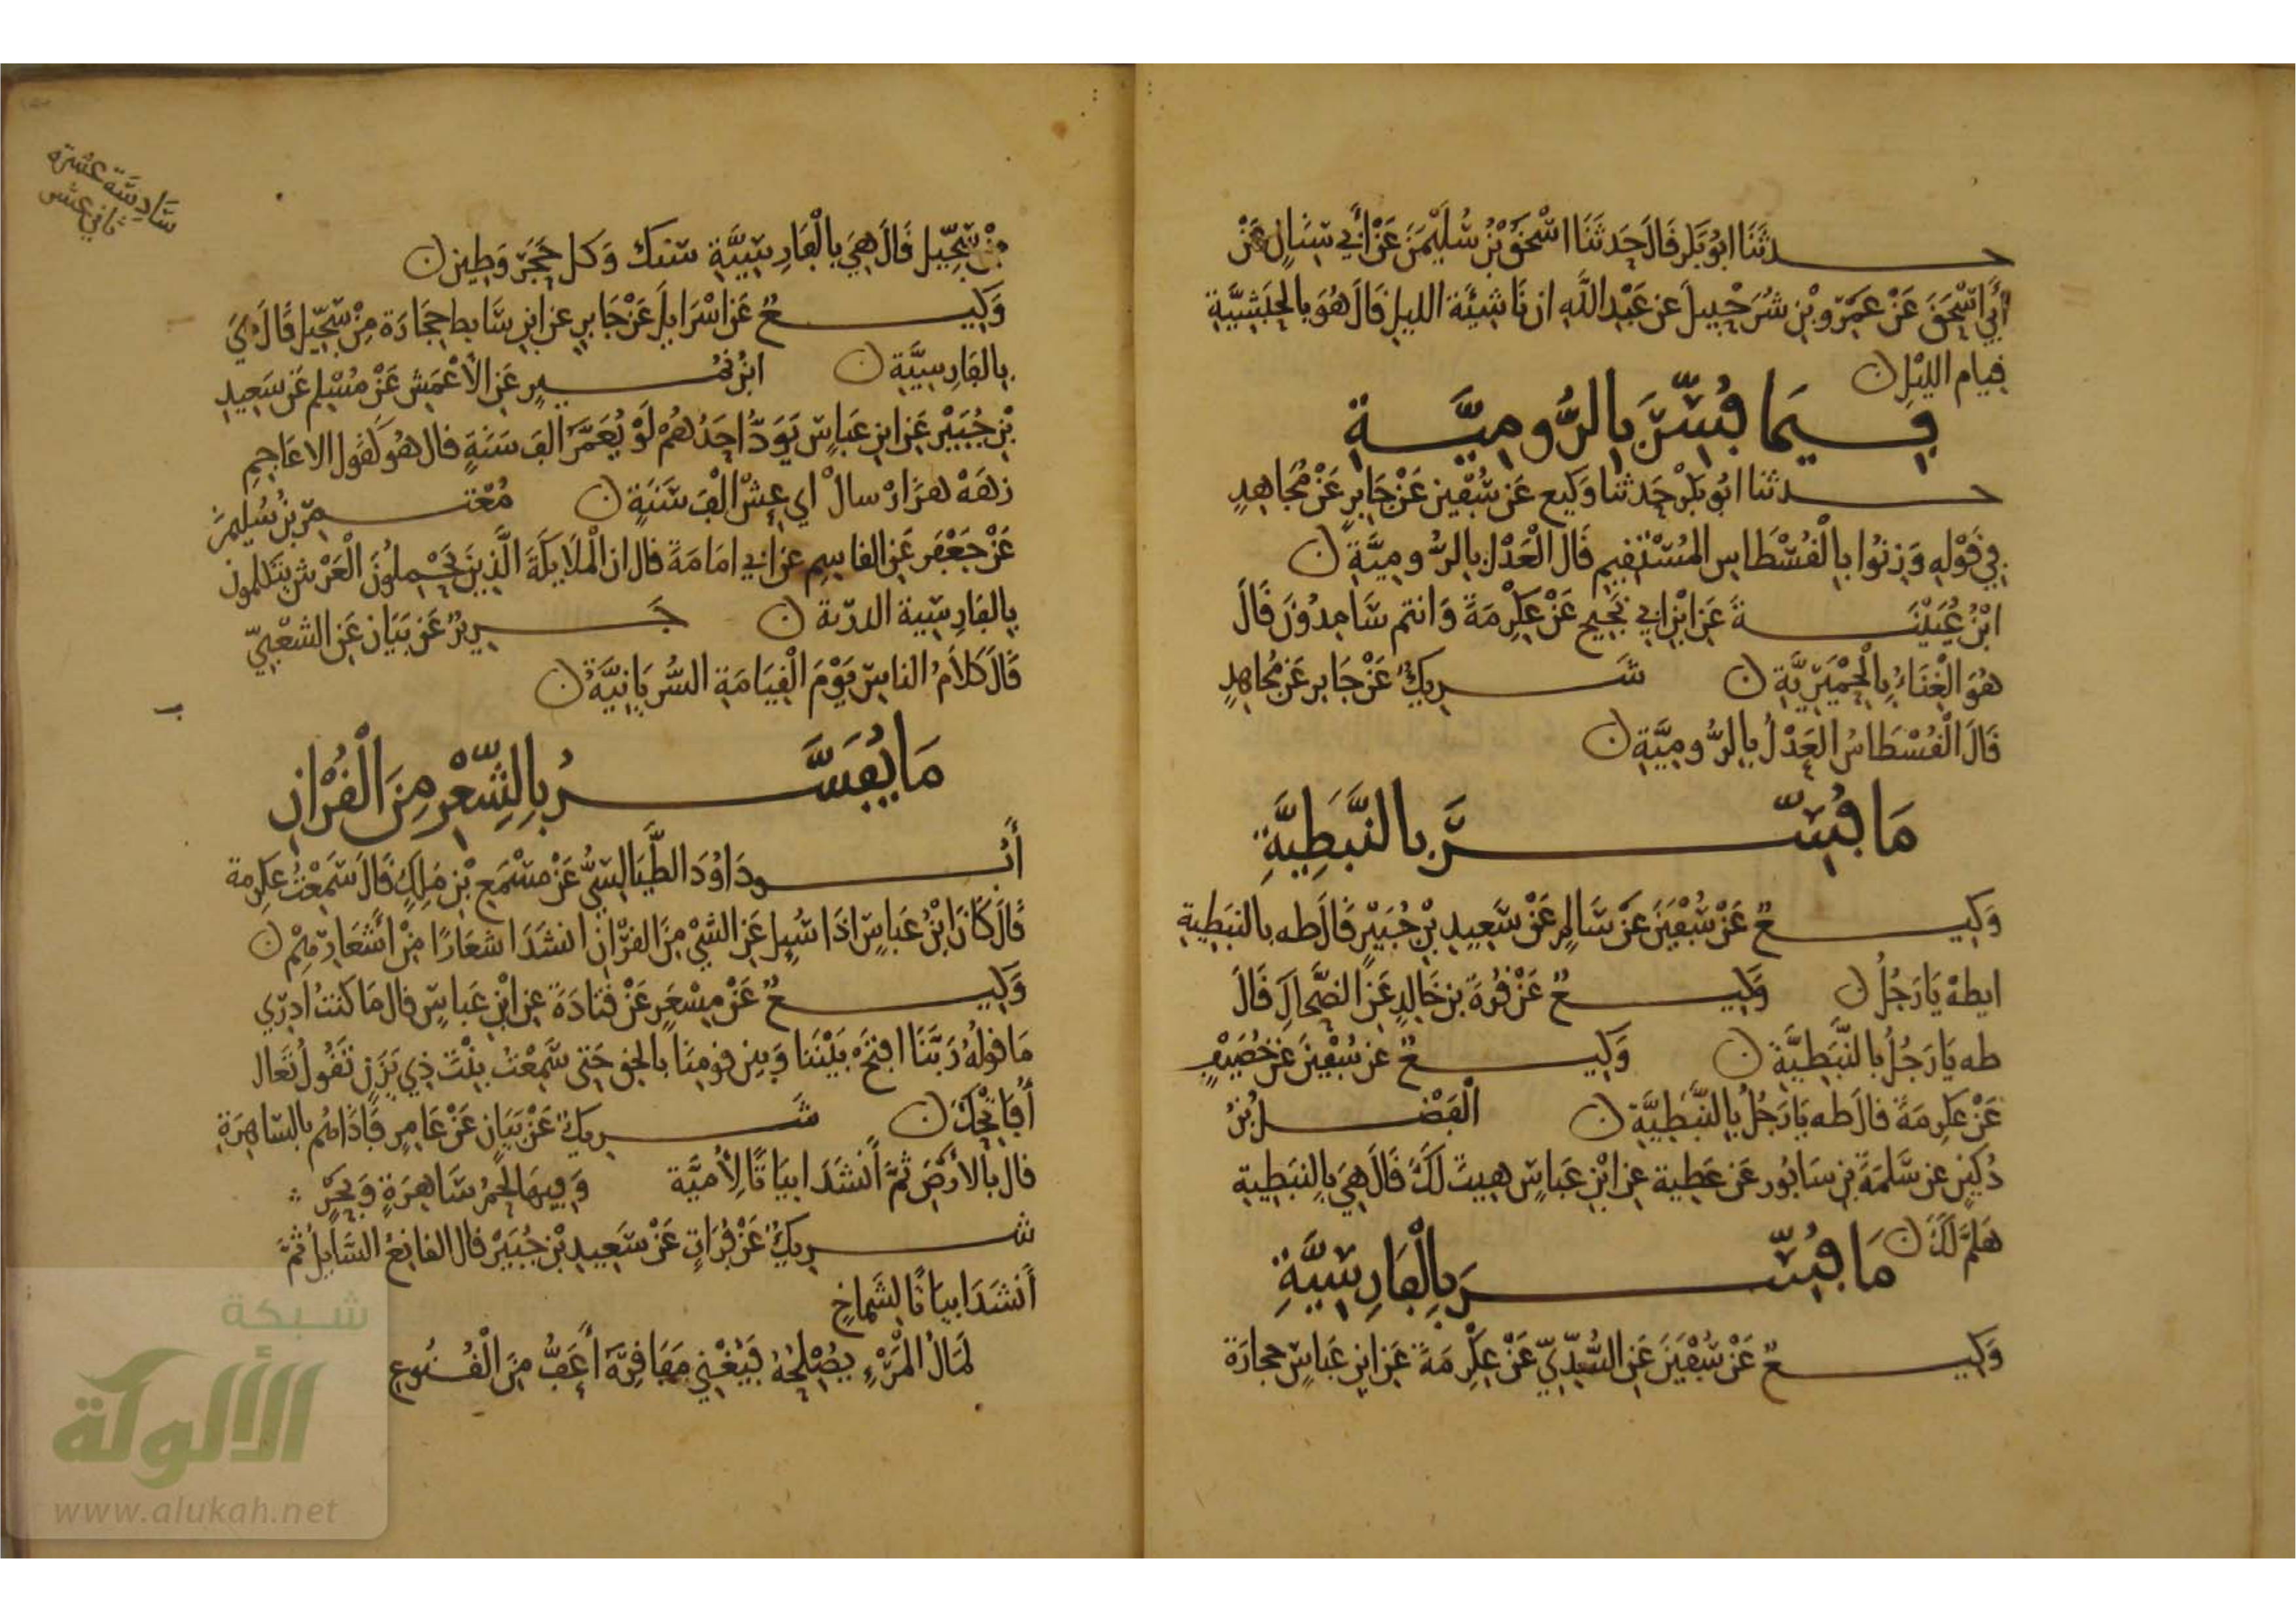 حدثنا ابو بكر قال حدثنا اسحق بن سليمن عن أبي سنان عن
أبي اسحق عن عمرو بن شرحبيل عن عبد الله ان ناشئة الليل قال هو بالحبشية
قيام الليل ن
فيما فسر بالرومية
حدثنا ابو بكر حدثنا وكيع عن سفين عن جابر عن مجاهد
في قوله وزنوا بالقسطاس المستقيم قال العدل بالرومية ن
ابن عيينة عن ابن ابي نجيح عن عكرمة وانتم سامدون قال
هو الغناء بالحميرية ن شريك عن جابر عن مجاهد
قال القسطاس العدل بالرومية ن
ما فسر بالنبطية
وكيع عن سفين عن سالم عن سعيد بن جبير قال طه بالنبطية
ايطه يا رجل ن وكيع عن قرة بن خالد عن الضحاك قال
طه يا رجل بالنبطية ن وكيع عن سفين عن خصيف
عن عكرمة قال طه يا رجل بالنبطية ن الفضل بن
دكين عن سلمة بن سابور عن عطية عن ابن عباس هيت لك قال هي بالنبطية
هلم لك ن ما فسر بالفارسية
وكيع عن سفين عن السدي عن عكرمة عن ابن عباس حجارة
سادسة عشرة
ثاني عشر
من سجيل قال هي بالفارسية سنك وكل حجر وطين ن
وكيع عن اسرايل عن جابر عن ابن سابط حجارة من سجيل قال هي
بالفارسية ن ابن نمير عن الأعمش عن مسلم عن سعيد
بن جبير عن ابن عباس يود احدهم لو يعمر الف سنة قال هو كقول الاعاجم
زهه هزار سال اي عش الف سنة ن معتمر بن سليمن
عن جعفر عن القاسم عن ابي امامة قال ان الملايكة الذين يحملون العرش يتكلمون
بالفارسية الدرية ن جرير عن بيان عن الشعبي
قال كلام الناس يوم القيامة السريانية ن
ما يفسر بالشعر من القران
أبو داود الطيالسي عن مسمع بن ملك قال سمعت عكرمة
قال كان ابن عباس اذا سيل عن الشي من القران انشد اشعارا من أشعارهم ن
وكيع عن مسعر عن قتادة عن ابن عباس قال ما كنت ادري
ما قوله ربنا افتح بيننا وبين قومنا بالحق حتى سمعت بنت ذي يزن تقول تعال
أفاتحك ن شريك عن بيان عن عامر فاذا هم بالساهرة
قال بالأرض ثم أنشد ابياتا لأمية وفيها لحم ساهرة وبحر
شريك عن فرات عن سعيد بن جبير قال القانع السايل ثم
أنشد ابياتا لشماخ
لمال المرء يصلحه فيغني مفاقره أعف من القنوع
شبكة
الألوكة
www.alukah.net